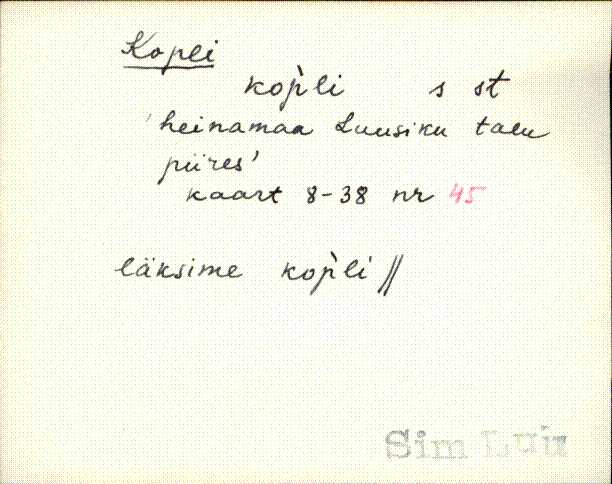 Kopli
kop̀li s st
'heinamaa Luusiku talu
piires'
kaart 8-38 nr 45
läksime kop̀li //
Sim Lui